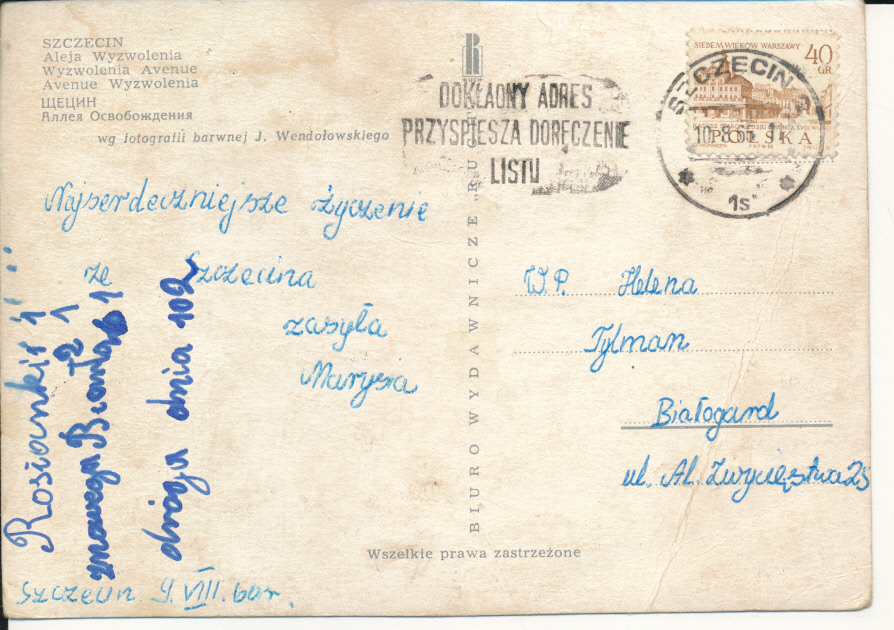 SZCZECIN
Aleja Wyzwolenia
Wyzwolenia Avenue
Avenue Wyzwolenia
ЩЕЦИН
Аллея Освобождения
wg fotografii barwnej J. Wendołowskiego
DOKŁADNY ADRES
PRZYSPIESZA DORĘCZENIE
LISTU
SIEDEM WIEKÓW WARSZAWY
40
GR
POLSKA
SZCZECIN
1s
Najserdeczniejsze życzenie
ze Szczecina
zasyła
Marysia
Szczecin 9.VIII.
BIURO WYDAWNICZE „RUCH"
W.P. Helena
Tylman
Białogard
ul. Al. Zwycięstwa 25
droga dnia 102
Wszelkie prawa zastrzeżone